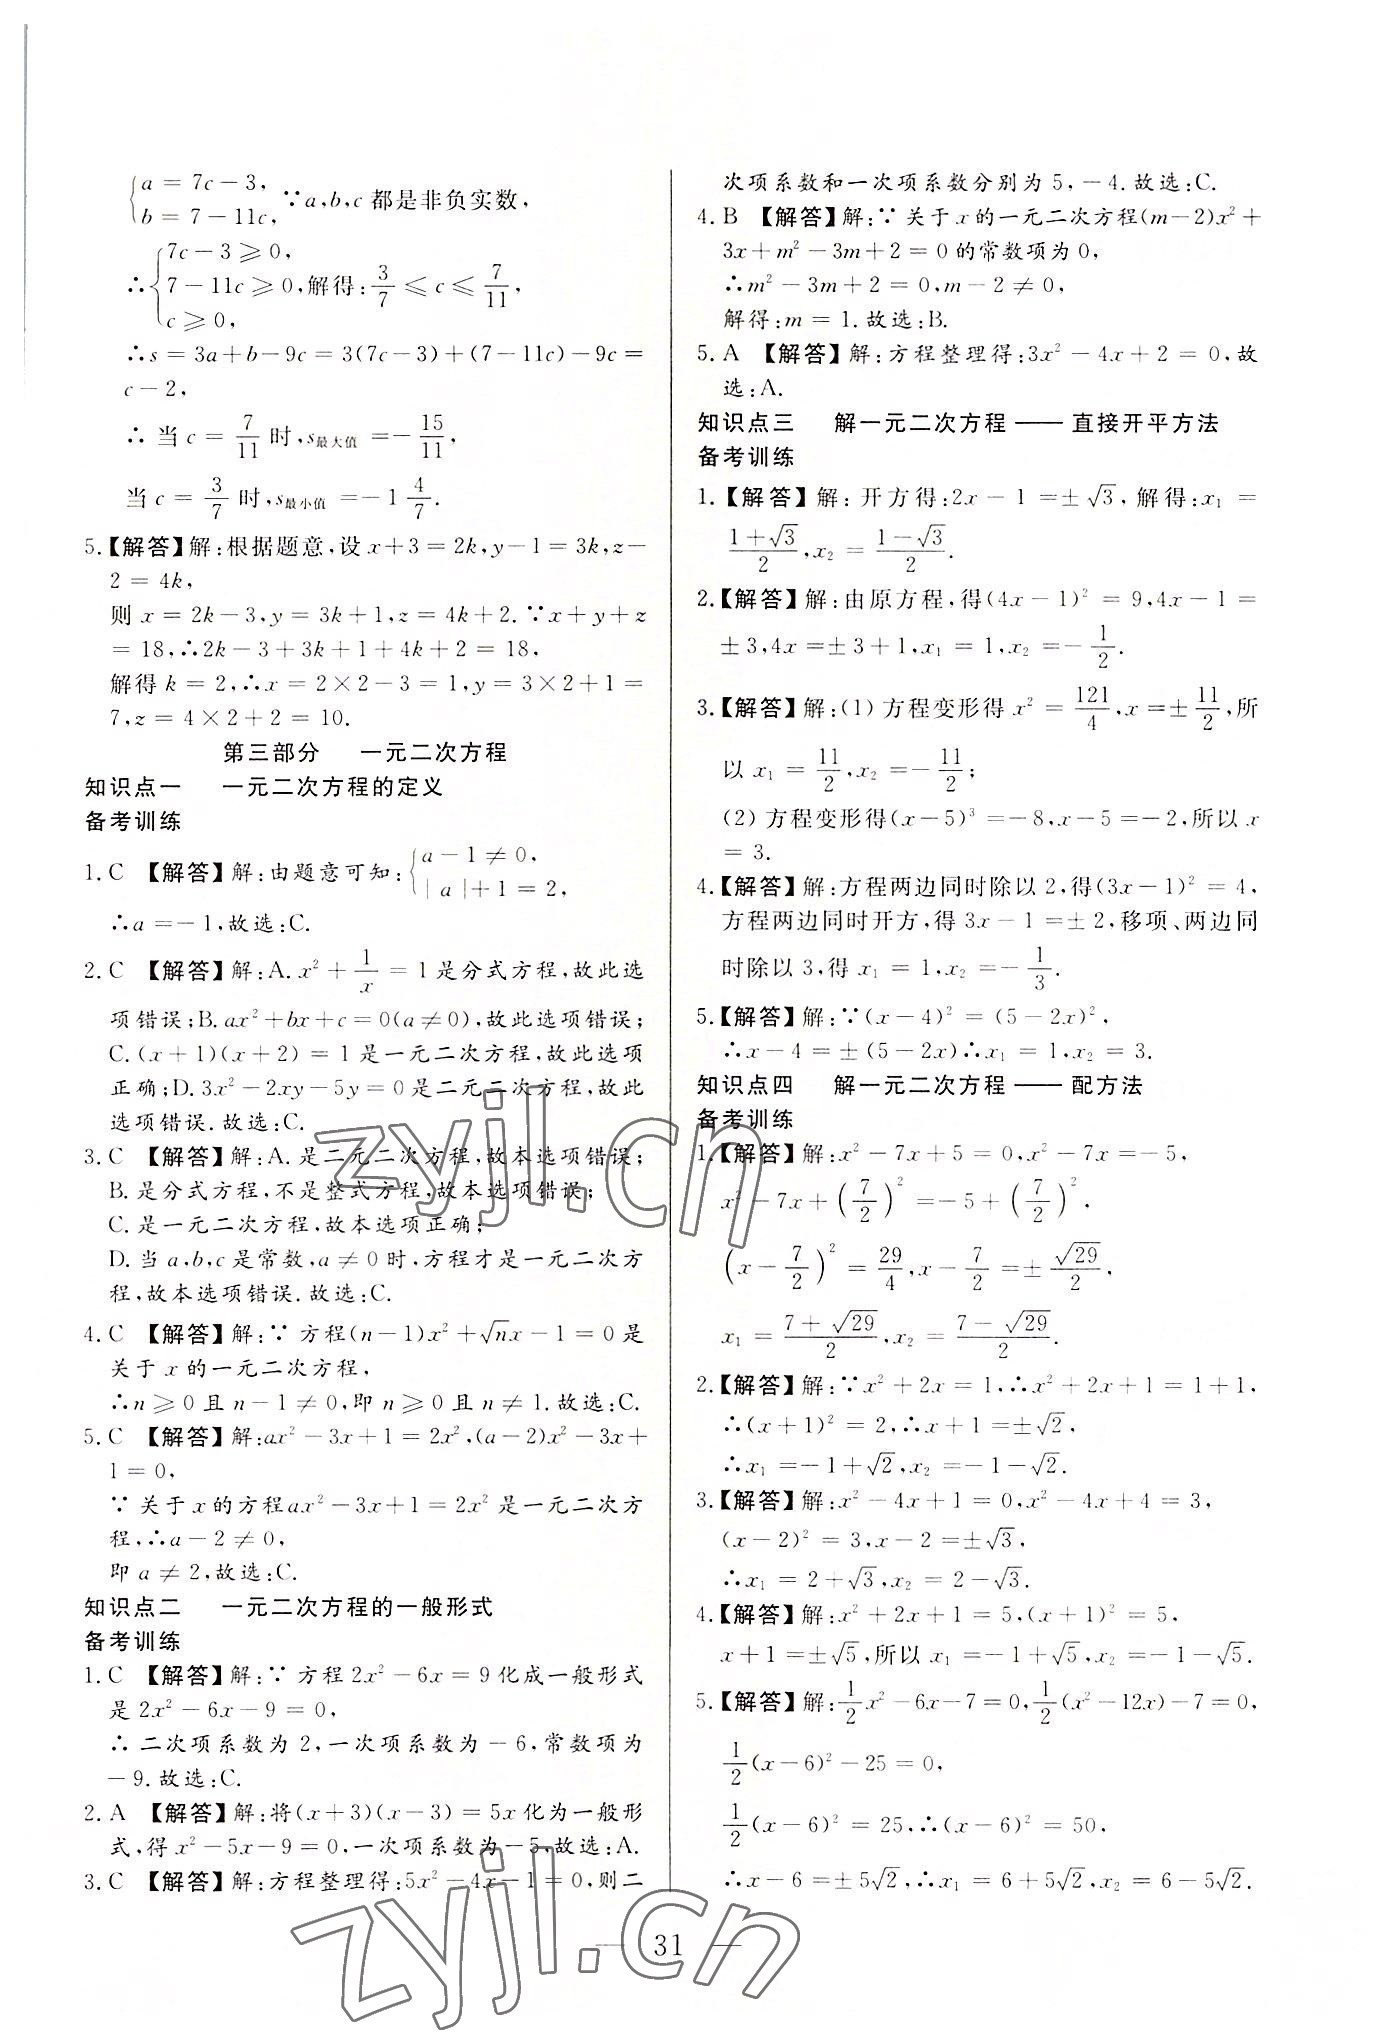 {a = 7c－3,
b = 7－11c, ∵a,b,c 都是非负实数,
∴{7c－3 ⩾ 0,
7－11c ⩾ 0,解得:3/7 ⩽ c ⩽ 7/11,
c ⩾ 0,
∴s = 3a＋b－9c = 3(7c－3)＋(7－11c)－9c =
c－2,
∴ 当 c = 7/11 时,s最大值 =－15/11,
当 c = 3/7 时,s最小值 =－1 4/7.
5.【解答】解:根据题意,设 x＋3 = 2k,y－1 = 3k,z－
2 = 4k,
则 x = 2k－3,y = 3k＋1,z = 4k＋2.∵x＋y＋z
= 18,∴2k－3＋3k＋1＋4k＋2 = 18,
解得 k = 2,∴x = 2×2－3 = 1,y = 3×2＋1 =
7,z = 4×2＋2 = 10.
第三部分 一元二次方程
知识点一 一元二次方程的定义
备考训练
1. C 【解答】解:由题意可知:{a－1 ≠ 0,
|a|＋1 = 2,
∴a =－1,故选:C.
2. C 【解答】解:A. x²＋1/x = 1 是分式方程,故此选
项错误;B. ax²＋bx＋c = 0(a ≠ 0),故此选项错误;
C. (x＋1)(x＋2) = 1 是一元二次方程,故此选项
正确;D. 3x²－2xy－5y = 0 是二元二次方程,故此
选项错误.故选:C.
3. C 【解答】解:A. 是二元二次方程,故本选项错误;
B. 是分式方程,不是整式方程,故本选项错误;
C. 是一元二次方程,故本选项正确;
D. 当 a,b,c 是常数,a ≠ 0 时,方程才是一元二次方
程,故本选项错误.故选:C.
4. C 【解答】解:∵ 方程(n－1)x²＋√n x－1 = 0 是
关于 x 的一元二次方程,
∴n ⩾ 0 且 n－1 ≠ 0,即 n ⩾ 0 且 n ≠ 1.故选:C.
5. C 【解答】解:ax²－3x＋1 = 2x²,(a－2)x²－3x＋
1 = 0,
∵ 关于 x 的方程 ax²－3x＋1 = 2x² 是一元二次方
程,∴a－2 ≠ 0,
即 a ≠ 2,故选:C.
知识点二 一元二次方程的一般形式
备考训练
1. C 【解答】解:∵ 方程 2x²－6x = 9 化成一般形式
是 2x²－6x－9 = 0,
∴ 二次项系数为 2,一次项系数为－6,常数项为
－9.故选:C.
2. A 【解答】解:将(x＋3)(x－3) = 5x 化为一般形
式,得 x²－5x－9 = 0,一次项系数为－5,故选:A.
3. C 【解答】解:方程整理得:5x²－4x－1 = 0,则二
次项系数和一次项系数分别为 5,－4.故选:C.
4. B 【解答】解:∵ 关于 x 的一元二次方程(m－2)x²＋
3x＋m²－3m＋2 = 0 的常数项为 0,
∴m²－3m＋2 = 0,m－2 ≠ 0,
解得:m = 1.故选:B.
5. A 【解答】解:方程整理得:3x²－4x＋2 = 0,故
选:A.
知识点三 解一元二次方程 —— 直接开平方法
备考训练
1.【解答】解:开方得:2x－1 =±√3,解得:x₁ =
(1＋√3)/2,x₂ = (1－√3)/2.
2.【解答】解:由原方程,得(4x－1)² = 9,4x－1 =
±3,4x =±3＋1,x₁ = 1,x₂ =－1/2.
3.【解答】解:(1) 方程变形得 x² = 121/4,x =±11/2,所
以 x₁ = 11/2,x₂ =－11/2;
(2) 方程变形得(x－5)³ =－8,x－5 =－2,所以 x
= 3.
4.【解答】解:方程两边同时除以 2,得(3x－1)² = 4,
方程两边同时开方,得 3x－1 =±2,移项、两边同
时除以 3,得 x₁ = 1,x₂ =－1/3.
5.【解答】解:∵(x－4)² = (5－2x)²,
∴x－4 =±(5－2x)∴x₁ = 1,x₂ = 3.
知识点四 解一元二次方程 —— 配方法
备考训练
1.【解答】解:x²－7x＋5 = 0,x²－7x =－5,
x²－7x＋(7/2)² =－5＋(7/2)²,
(x－7/2)² = 29/4,x－7/2 =±√29/2,
x₁ = (7＋√29)/2,x₂ = (7－√29)/2.
2.【解答】解:∵x²＋2x = 1,∴x²＋2x＋1 = 1＋1,
∴(x＋1)² = 2,∴x＋1 =±√2,
∴x₁ =－1＋√2,x₂ =－1－√2.
3.【解答】解:x²－4x＋1 = 0,x²－4x＋4 = 3,
(x－2)² = 3,x－2 =±√3,
∴x₁ = 2＋√3,x₂ = 2－√3.
4.【解答】解:x²＋2x＋1 = 5,(x＋1)² = 5,
x＋1 =±√5,所以 x₁ =－1＋√5,x₂ =－1－√5.
5.【解答】解:1/2 x²－6x－7 = 0,1/2(x²－12x)－7 = 0,
1/2(x－6)²－25 = 0,
1/2(x－6)² = 25,∴(x－6)² = 50,
∴x－6 =±5√2,∴x₁ = 6＋5√2,x₂ = 6－5√2.
— 31 —
zyjl.cn
zyjl.cn